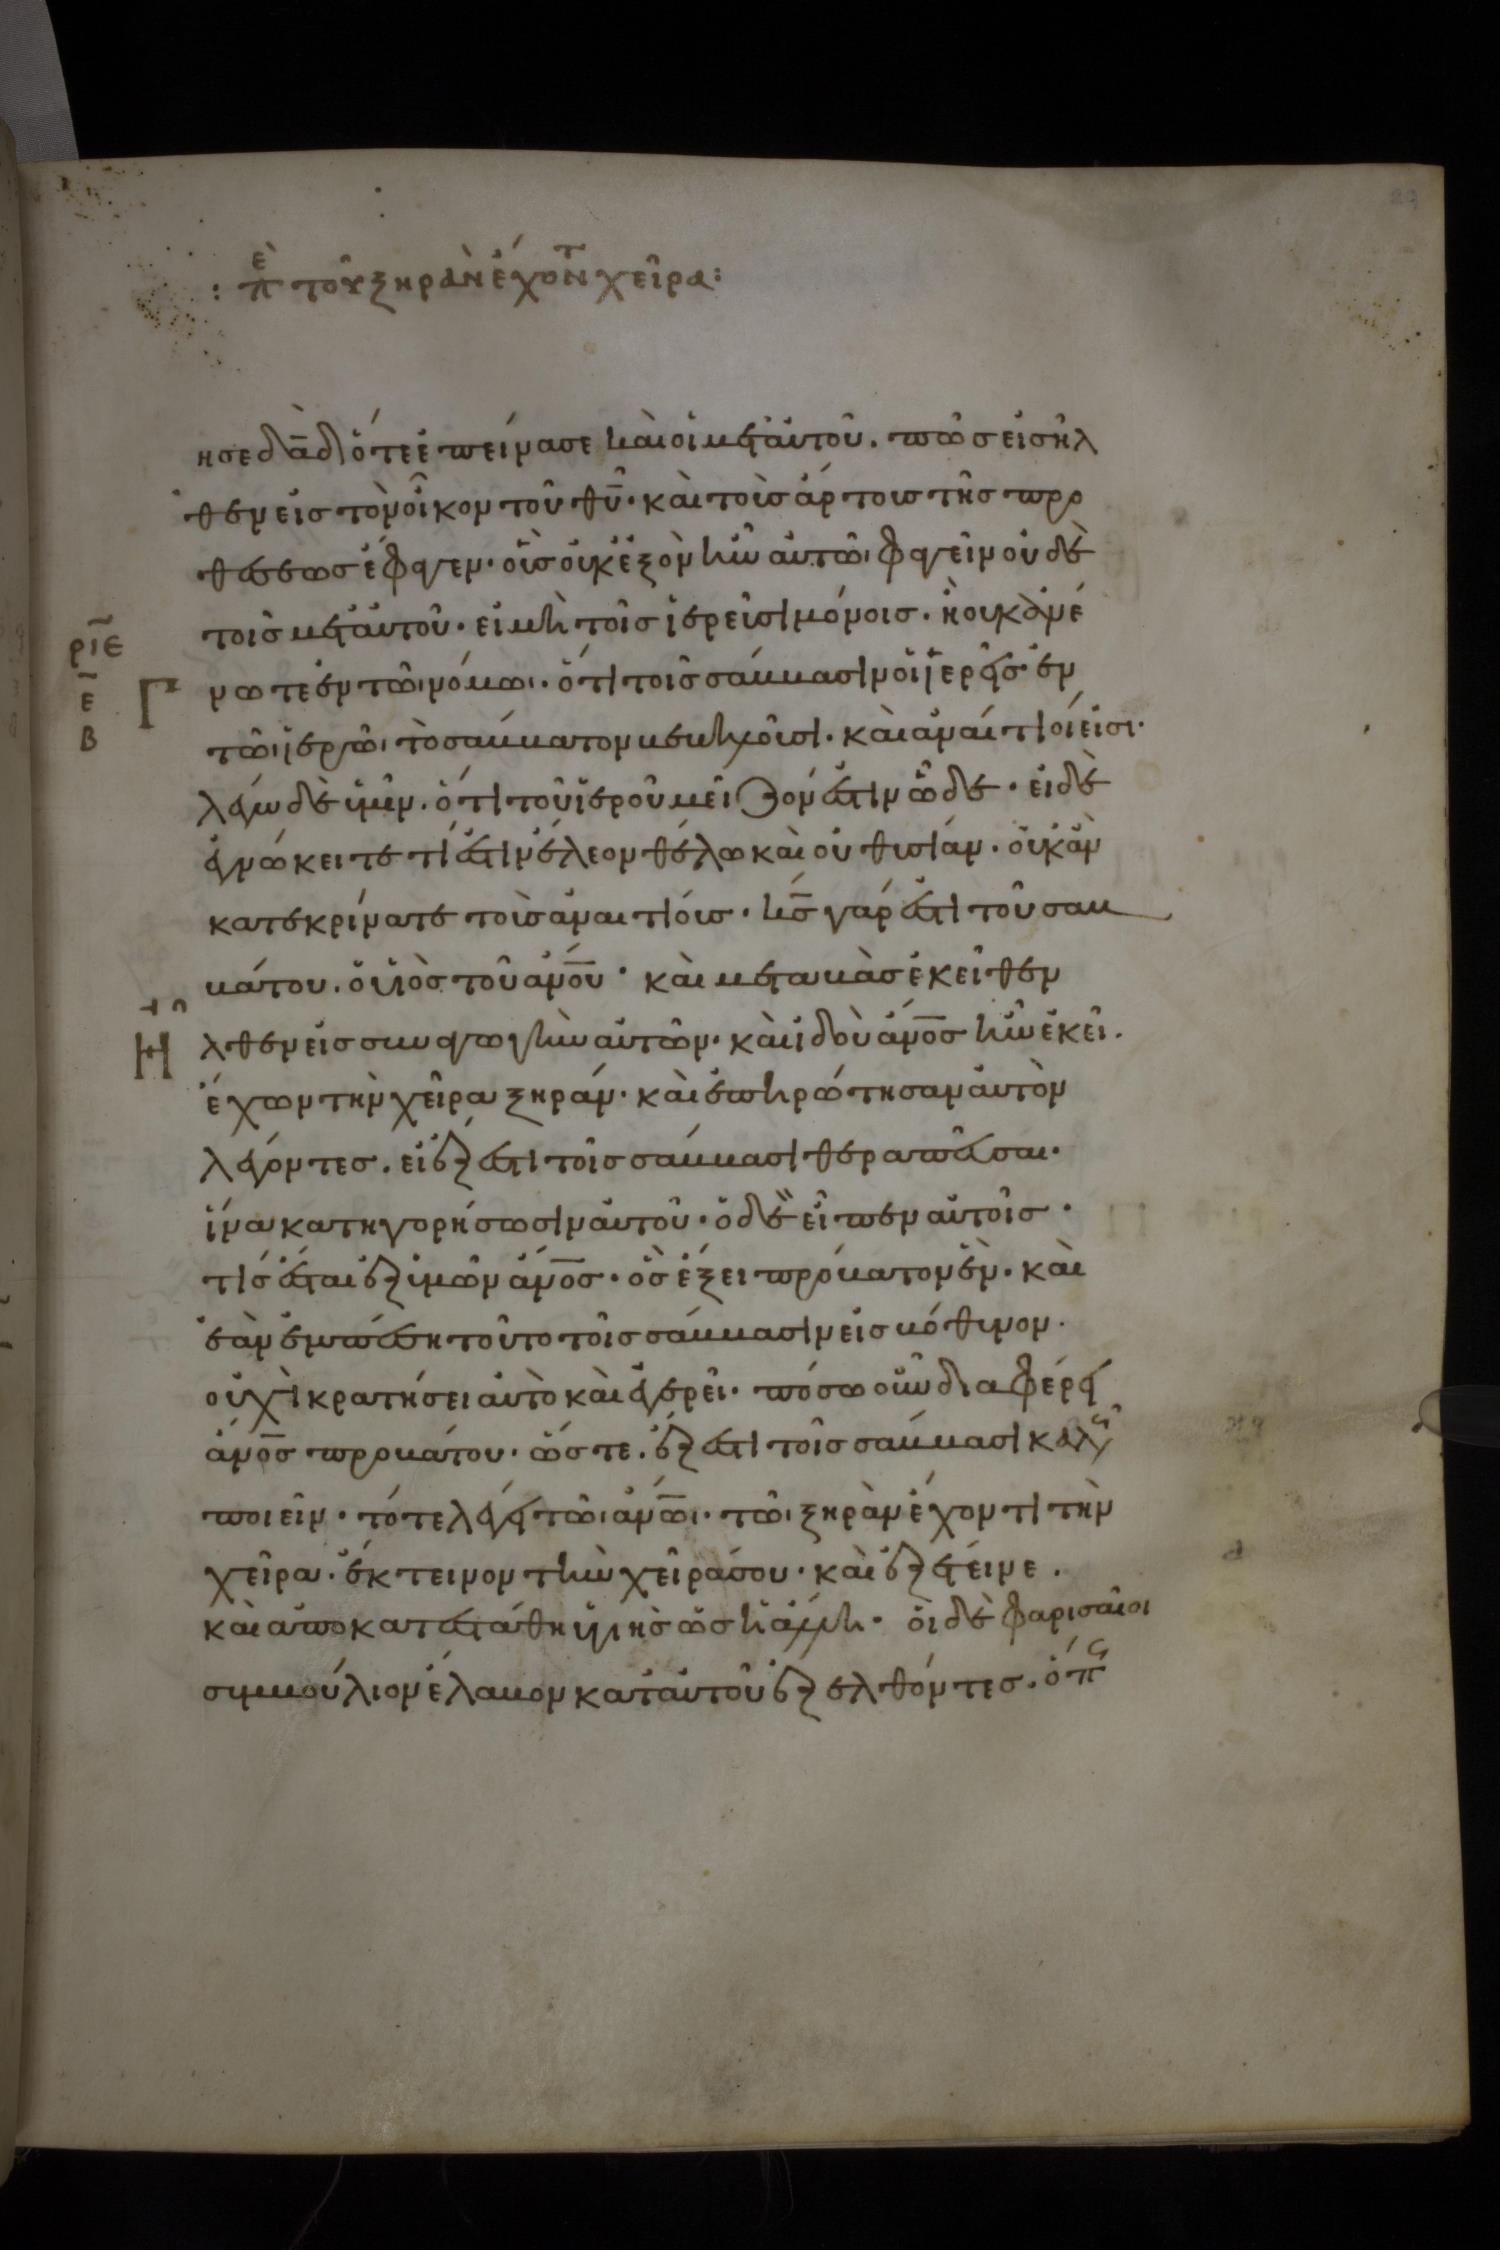 : πὲ τοῦ ξηρὰν ἔχοντ χεῖρα:
ησε δᾱδ ὅτε ἐπείνασε καὶ οἱ μετ' αὐτοῦ. πῶς εἰσῆλ
θεν εἰς τὸν οἶκον τοῦ θῡ· καὶ τοὺς ἄρτους τῆς προ
θέσεως ἔφαγεν· οὓς οὐκ ἐξὸν ἦν αὐτῶι φαγεῖν οὐδὲ
τοῖς μετ' αὐτοῦ· εἰ μὴ τοῖς ἱερεῦσι μόνοις. ἢ οὐκ ἀνέ
ρι̅ε
ε̅
β
Γ
νωτε ἐν τῶι νόμωι· ὅτι τοῖς σάββασιν οἱ ἱερεῖς ἐν
τῶι ἱερῶι τὸ σάββατον βεβηλοῦσι· καὶ ἀναίτιοί εἰσι·
λέγω δὲ ὑμῖν. ὅτι τοῦ ἱεροῦ μεῖζόν ἐστιν ὧδε· εἰ δὲ
ἐγνώκειτε τί ἐστιν ἔλεον θέλω καὶ οὐ θυσίαν. οὐκ ἂν
κατεκρίνατε τοὺς ἀναιτίους· κ̅ς γάρ ἐστι τοῦ σαβ
βάτου. ὁ υἱὸς τοῦ ἀν̅ο̅υ· καὶ μεταβὰς ἐκεῖθεν
Η
λθεν εἰς συναγωγὴν αὐτῶν· καὶ ἰδοὺ ἄν̅ο̅ς ἦν ἐκεῖ.
ἔχων τὴν χεῖρα ξηράν· καὶ ἐπηρώτησαν αὐτὸν
λέγοντες. εἰ ἔξεστι τοῖς σάββασι θεραπεῦσαι·
ἵνα κατηγορήσωσιν αὐτοῦ· ὁ δὲ εἶπεν αὐτοῖς·
τίς ἔσται ἐξ ὑμῶν ἄν̅ο̅ς· ὃς ἕξει πρόβατον ἕν· καὶ
ἐὰν ἐμπέση τοῦτο τοῖς σάββασιν εἰς βόθυνον·
οὐχὶ κρατήσει αὐτὸ καὶ ἐγερεῖ· πόσω οὖν διαφέρει
ἄν̅ο̅ς προβάτου· ὥστε. ἔξεστι τοῖς σάββασι καλῶς
ποιεῖν· τότε λέγει τῶι ἀν̅ω̅ι· τῶι ξηρὰν ἔχοντι τὴν
χεῖρα· ἔκτεινον τὴν χεῖρά σου· καὶ ἐξέτεινε.
καὶ ἀποκατεστάθη ὑγιὴς ὡς ἡ ἄλλη· οἱ δὲ φαρισαῖοι
συμβούλιον ἔλαβον κατ' αὐτοῦ ἐξελθόντες· ὅπς